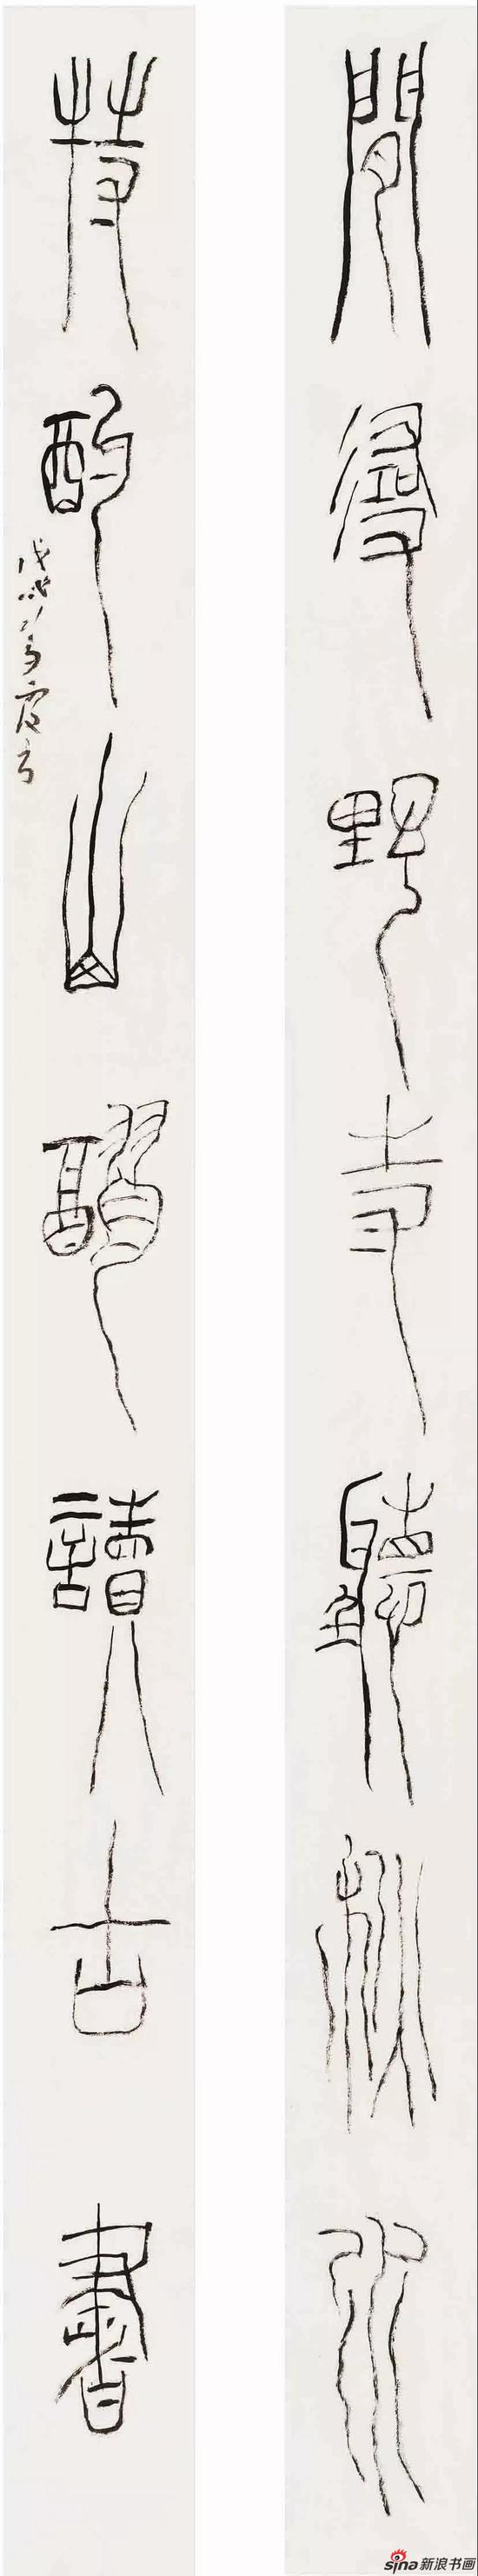 閒尋野寺聽秋水
特酌山醪讀古書
戊戌
sina新浪书画